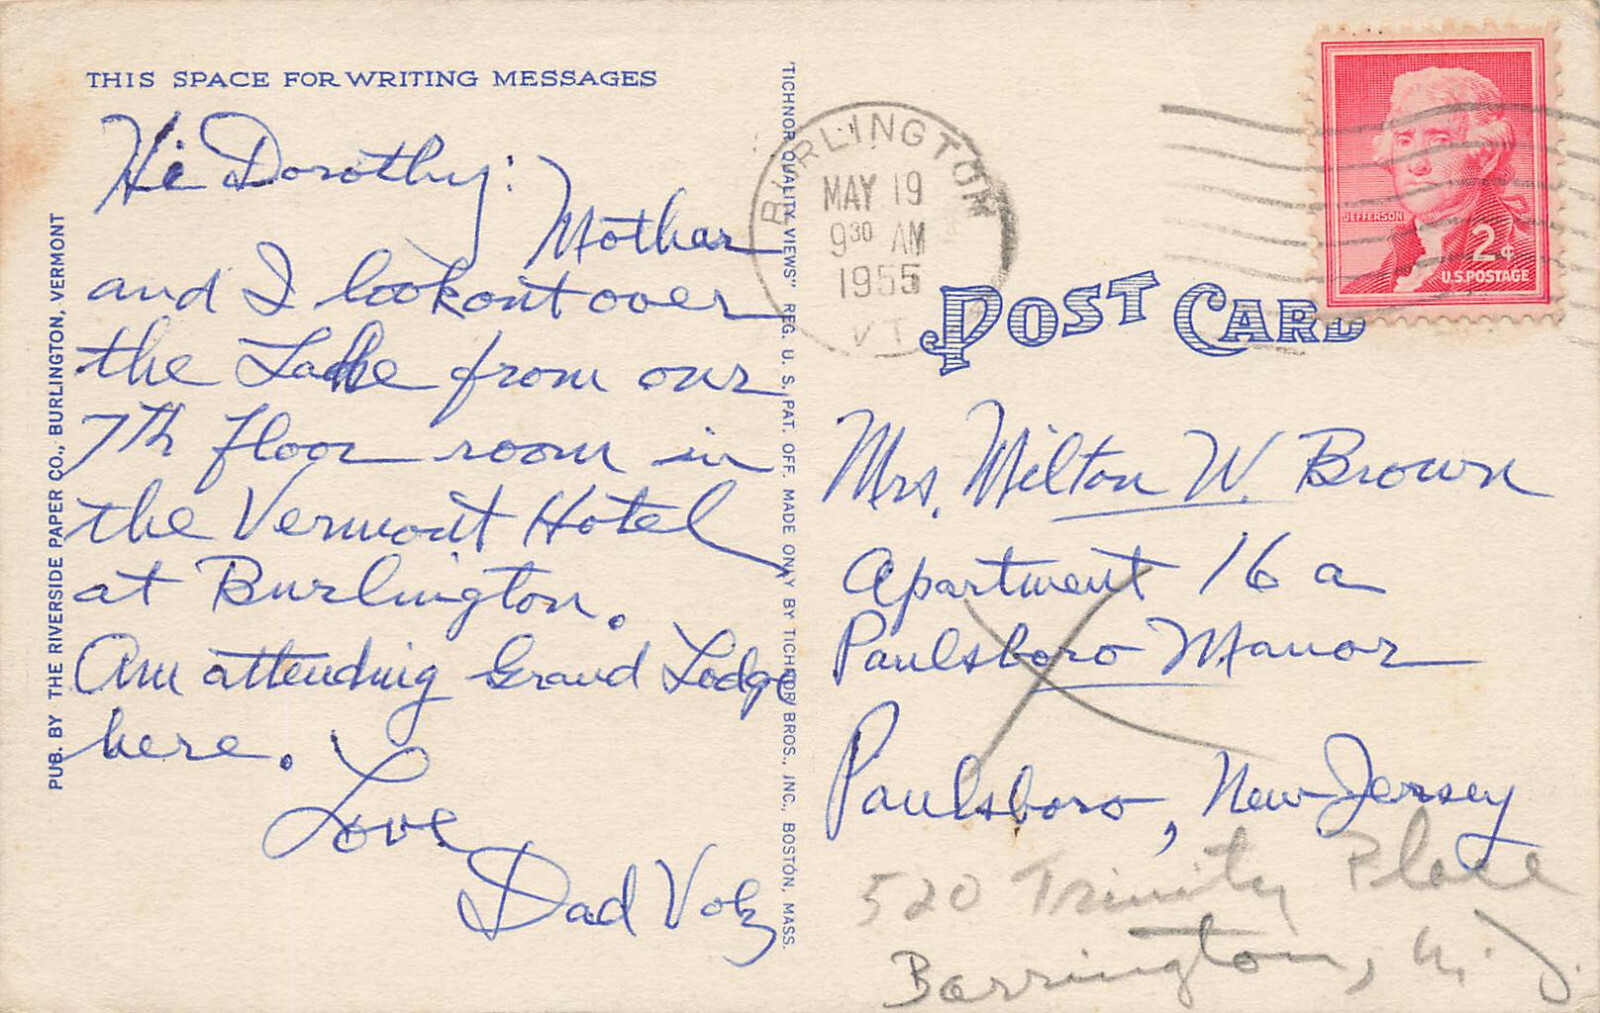 THIS SPACE FOR WRITING MESSAGES
Hi Dorothy:
Mother
and I look out over
the Lake from our
7th floor room in
the Vermont Hotel
at Burlington.
Am attending Grand Lodge
here.
Love
Dad Volz
PUB. BY THE RIVERSIDE PAPER CO., BURLINGTON, VERMONT
"TICHNOR QUALITY VIEWS" REG. U. S. PAT. OFF. MADE ONLY BY TICHNOR BROS., INC., BOSTON, MASS.
BURLINGTON
MAY 19
9 30 AM
1955
VT
JEFFERSON
2¢
U.S. POSTAGE
POST CARD
Mrs. Milton W. Brown
Apartment 16 a
Paulsboro Manor
Paulsboro, New Jersey
520 Trinity Place
Barrington, N. J.